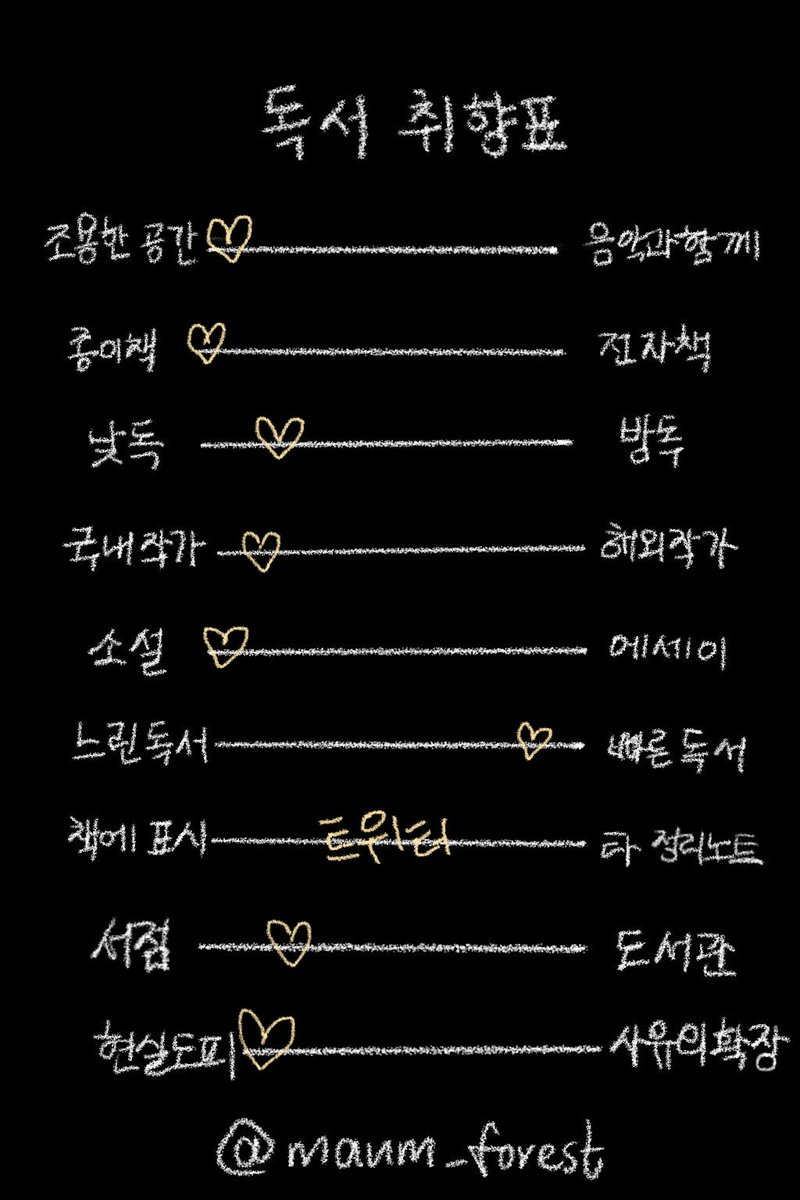 독서 취향표
조용한 공간 음악과함께
종이책 전자책
낮독 밤독
국내작가 해외작가
소설 에세이
느린독서 빠른독서
책에 표시 트위터 타 정리노트
서점 도서관
현실도피 사유의확장
@maum_forest